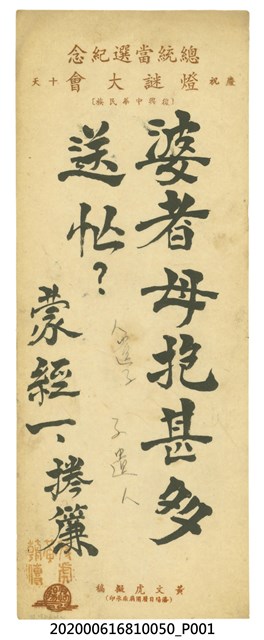 總統當選紀念
慶祝 燈謎大會 十天
婆者母抱甚多
送忙？
蒙經一、捲簾
人遺子
子遺人
黃文虎擬稿
202000616810050_P001